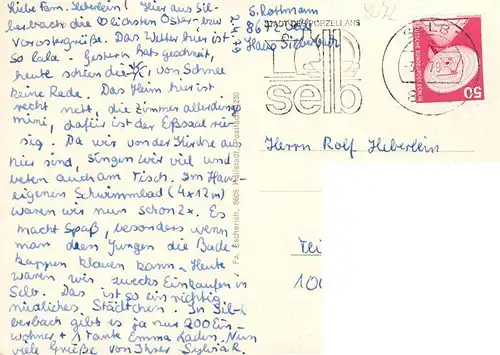 Liebe Fam. Heberlein! Hier aus Sil-
berbach die herzlichsten Oster- bzw
Vorostergrüße. Das Wetter hier ist
so lala. Gestern hat's geschneit,
heute schien die , von Schnee
keine Rede. Das Heim hier ist
recht nett, die Zimmer allerdings
mini, dafür ist der Eßsaal rie-
sig. Da wir von der Kirche aus
hier sind, singen wir viel und
beten auch am Tisch. Im Haus-
eigenen Schwimmbad (4x12m)
waren wir nun schon 2x. Es
macht Spaß, besonders wenn
man den Jungen die Bade-
kappen klauen kann. Heute
waren wir zwecks Einkaufen in
Selb. Das ist so ein richtig
niedliches Städtchen. In Sil-
berbach gibt es ja nur 200 Ein-
wohner + 1 Tante Emma Laden. Nun
viele Grüße von Ihrer Sylvia K.
2.4.77
Fa. Escherich, 8605 Hallstadt,
S. Rottmann
8672 Selb
Haus Silberbach
8672
STADT DES PORZELLANS
selb
SELB
DEUTSCHE BUNDESPOST
50
Herrn Rolf Heberlein